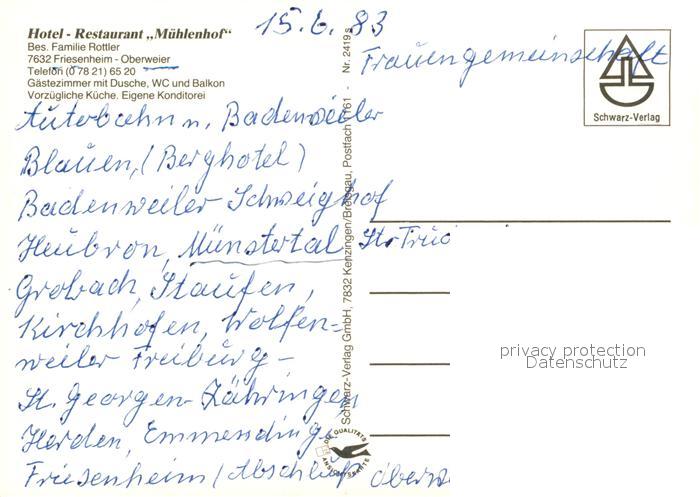 Hotel - Restaurant „Mühlenhof“
Bes. Familie Rottler
7632 Friesenheim - Oberweier
Telefon (0 78 21) 65 20
Gästezimmer mit Dusche, WC und Balkon
Vorzügliche Küche. Eigene Konditorei
15.6.83
Frauengemeinschaft
Autobahn n. Badenweiler
Blauen, (Berghotel)
Badenweiler Schweighof
Heubron, Münstertal St. Trud
Grobach, Staufen,
Kirchhofen, Wolfen-
weiler Freiburg -
St. Georgen - Zähringen
Herden, Emmending.
Friesenheim (Abschluß Oberw
Schwarz-Verlag GmbH, 7832 Kenzingen/Breisgau, Postfach 1161 - Nr. 2419 s
Schwarz-Verlag
DIE QUALITÄTS
ANSICHTSKARTE
privacy protection
Datenschutz